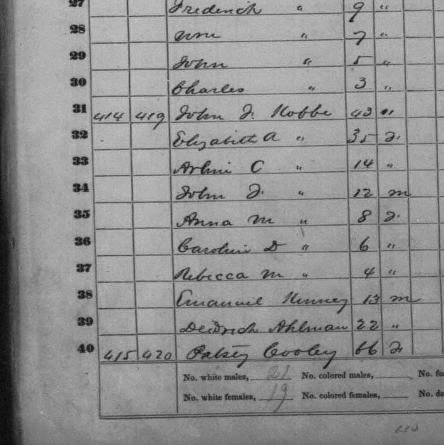 27 Frederick " 9 "
28 Wm " 7 "
29 John " 5 "
30 Charles " 3 "
31 414 419 John F. Hobbe 43 "
32 Elizabeth A " 35 F.
33 C " 14 "
34 John F. " 12 m
35 Anna M " 8 F.
36 Caroline D " 6 "
37 Rebecca M " 4 "
38 Emanuel Kenney 13 m
39 Deidrich Ahlman 22 "
40 415 420 Patsey Cooley 66 F.
No. white males, 21 No. colored males, No.
No. white females, 19 No. colored females, No.